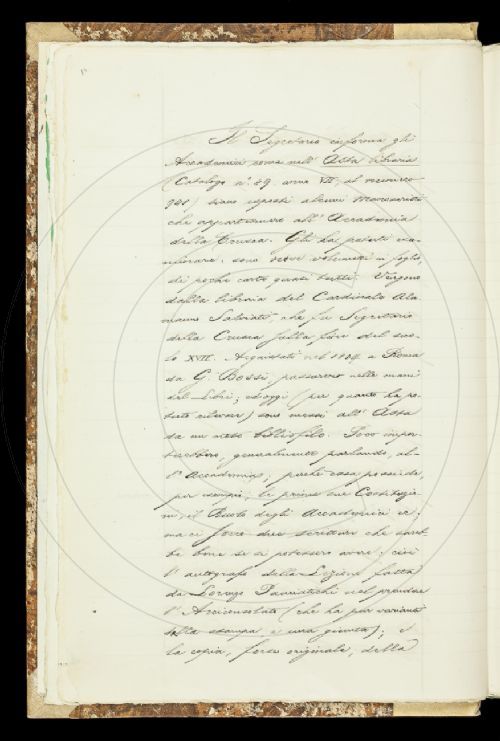 Il Segretario informa gli
Accademici come nell' Asta libraria
(Catalogo n°. 49. anno VII, al numero
948) siano esposti alcuni Manoscritti
che appartennero all' Accademia
della Crusca. Gli ha potuti esa-
minare: sono nove volumetti in foglio,
di poche carte quasi tutti. Vengono
dalla libreria del Cardinale Ala-
manno Salviati, che fu Segretario
della Crusca sulla fine del seco-
lo XVII. Acquistati nel 1804 a Roma
da G. Bossi, passarono nelle mani
del Libri; ed oggi (per quanto ha po-
tuto rilevare) sono messi all' Asta
da un noto bibliofilo. Poco impor-
terebbero, generalmente parlando, al-
l' Accademia; perchè essa possiede,
per esempio, le prime sue Costituzio-
ni, il Ruolo degli Accademici ec.
ma ci sono due scritture che sareb-
be bene se si potessero avere; cioè
l' autografo della Lezione fatta
da Lorenzo Panciatichi nel prendere
l' Arciconsolato (che ha pur varianti
dalla stampa, e una giunta); e
la copia, forse originale, della